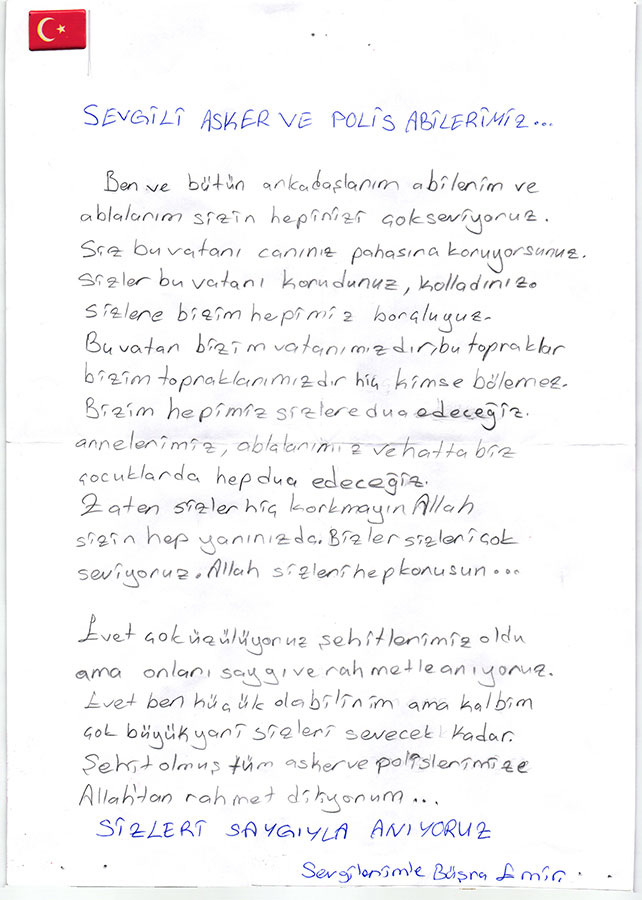 SEVGİLİ ASKER VE POLİS ABİLERİMİZ...
Ben ve bütün arkadaşlarım abilerim ve
ablalarım sizin hepinizi çok seviyoruz.
Siz bu vatanı canınız pahasına koruyorsunuz.
Sizler bu vatanı korudunuz, kolladınız.
Sizlere bizim hepimiz borçluyuz.
Bu vatan bizim vatanımızdır, bu topraklar
bizim topraklarımızdır hiç kimse bölemez.
Bizim hepimiz sizlere dua edeceğiz.
annelerimiz, ablalarımız ve hatta biz
çocuklarda hep dua edeceğiz.
Zaten sizler hiç korkmayın Allah
sizin hep yanınızda. Bizler sizleri çok
seviyoruz. Allah sizleri hep korusun...
Evet çok üzülüyoruz şehitlerimiz oldu
ama onları saygı ve rahmetle anıyoruz.
Evet ben küçük olabilirim ama kalbim
çok büyük yani sizleri sevecek kadar.
Şehit olmuş tüm asker ve polislerimize
Allah'tan rahmet diliyorum...
SİZLERİ SAYGIYLA ANIYORUZ
Sevgilerimle Büşra Emiri